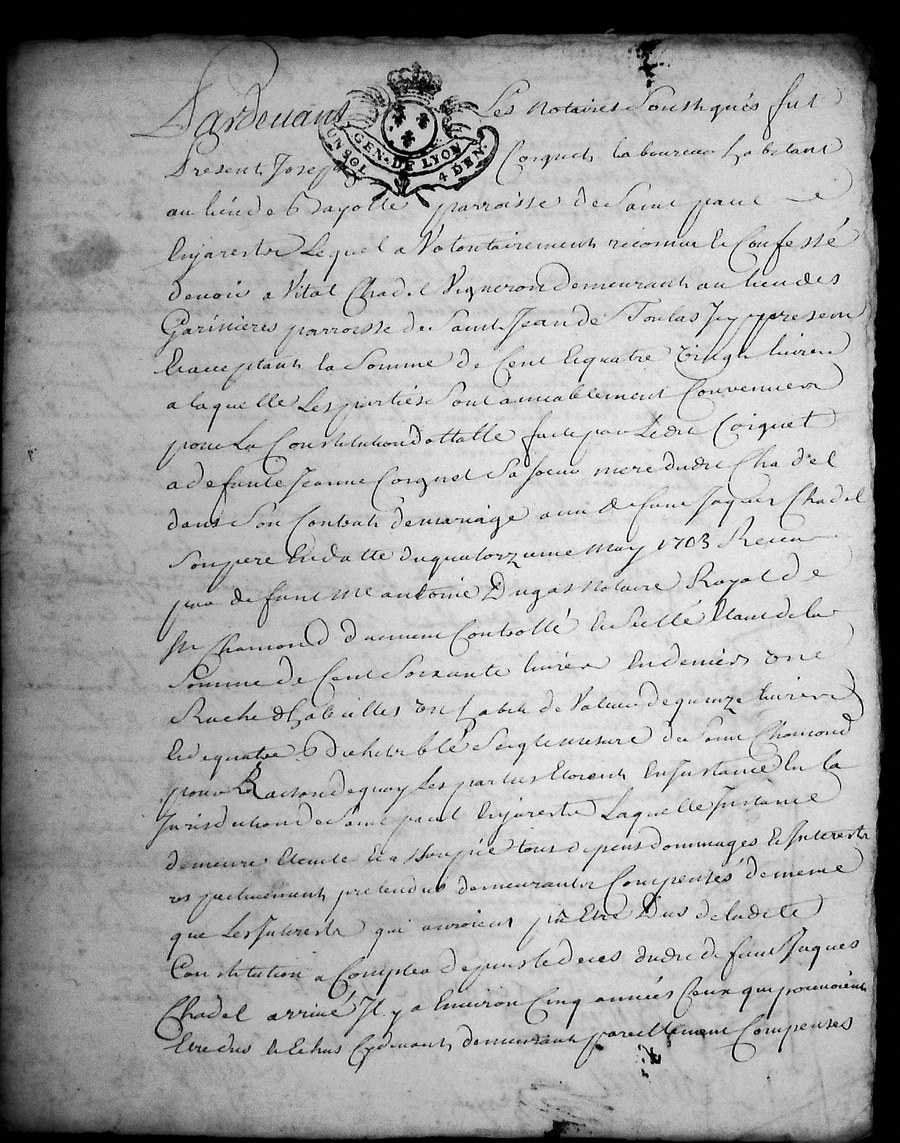 Pardevant Les Notaires Soussignés fut
GEN. DE LYON
UN SOL 4 DEN.
Present Joseph Coignet laboureur habitant
au lieu de parroisse de Saint paul
Enjarestz Lequel a Volontairement reconnu Et Confessé
devoir a Vital Chadel Vigneron demeurant au lieu des
Garinieres parroisse de Saint Jean de Toulas Icy present
Et acceptant la Somme de Cent Et quatre vingt livres
a laquelle Les parties Sont amiablement Convenues
pour La Constitution dottalle faite par Ledit Coignet
a defunte Jeanne Coignet Sa Soeur mere dudit Chadel
dans Son Contrat de mariage avec defunt Jaques Chadel
Son pere En datte du quatorzieme May 1703 Receu
par defunt Me antoine Dugas Notaire Royal de
St Chamond duement Controllé Et Scellé Etant de la
Somme de Cent Soixante livres En deniers une
Ruche d'habeilles un habit de Valeur de quinze livres
Et de quatre bichets blé Seigle mesure de Saint Chamond
pour Raison de quoy Les parties Etoient En Instance En la
Jurisdiction de Saint paul Enjarestz Laquelle Instance
demeure Eteinte Et assoupie tous depens dommages Et Interests
respectivement pretendus demeurants Compensés de meme
que Les Interests qui auroient pû Etre Dus de ladite
Constitution a Compter depuis le deces dudit defunt Jaques
Chadel arrivé Il y a Environ Cinq années Ceux qui pouvoient
Etre dus Et Echus Cydevant demeurant pareillement Compensés